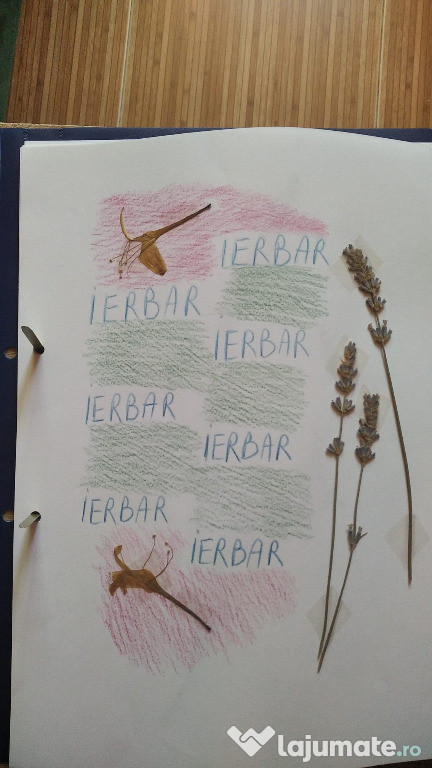 IERBAR
IERBAR
IERBAR
IERBAR
IERBAR
IERBAR
IERBAR
lajumate.ro